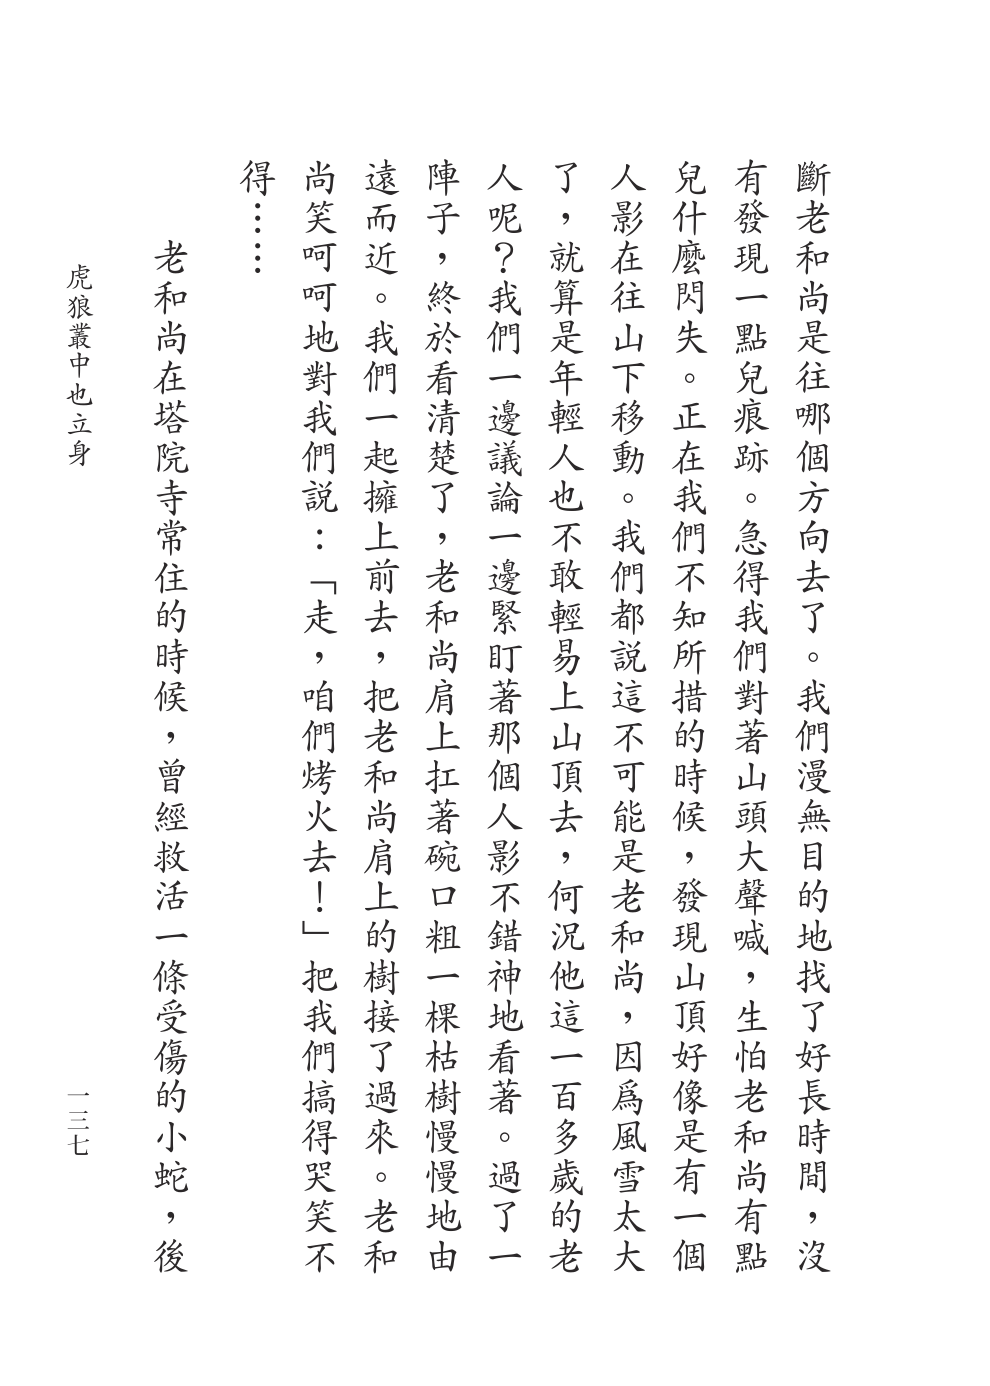 斷老和尚是往哪個方向去了。我們漫無目的地找了好長時間，沒
有發現一點兒痕跡。急得我們對著山頭大聲喊，生怕老和尚有點
兒什麼閃失。正在我們不知所措的時候，發現山頂好像是有一個
人影在往山下移動。我們都説這不可能是老和尚，因爲風雪太大
了，就算是年輕人也不敢輕易上山頂去，何況他這一百多歲的老
人呢？我們一邊議論一邊緊盯著那個人影不錯神地看著。過了一
陣子，終於看清楚了，老和尚肩上扛著碗口粗一棵枯樹慢慢地由
遠而近。我們一起擁上前去，把老和尚肩上的樹接了過來。老和
尚笑呵呵地對我們説：「走，咱們烤火去！」把我們搞得哭笑不
得……
老和尚在塔院寺常住的時候，曾經救活一條受傷的小蛇，後
虎狼叢中也立身
一三七